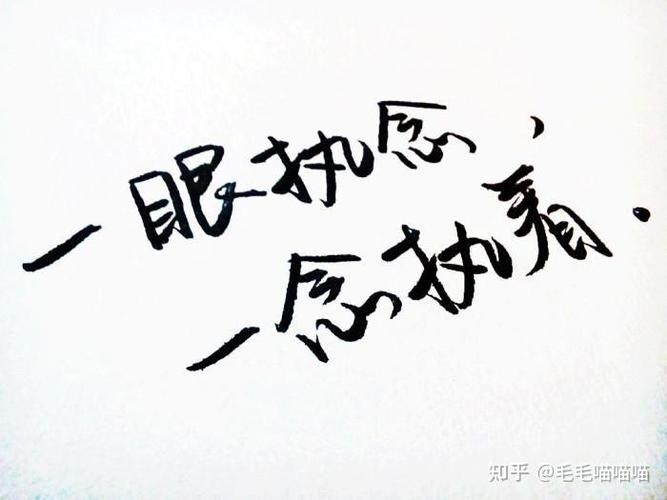 一眼执念，
一念执着.
知乎 @毛毛喵喵喵